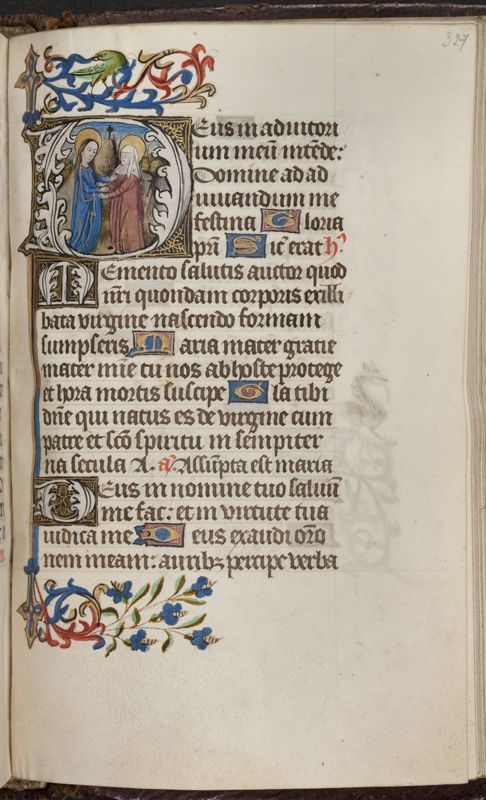 327
Deus in adiutori
um meū intēde:
Domine ad ad
iuuandum me
festina Gloria
pr̄i Sic̄ erat hꝰ
Memento salutis auctor quod
nr̄i quondam corporis exilli
bata virgine nascendo formam
sumpseris Maria mater gratie
mater mīe tu nos ab hoste protege
et hora mortis suscipe Gl̄a tibi
dn̄e qui natus es de virgine cum
patre et sc̄o spiritu in sempiter
na secula A. aꝰ. Assūpta est maria
Deus in nomine tuo saluū
me fac: et in virtute tua
iudica me Deus exaudi or̄o
nem meam: auribꝫ percipe verba